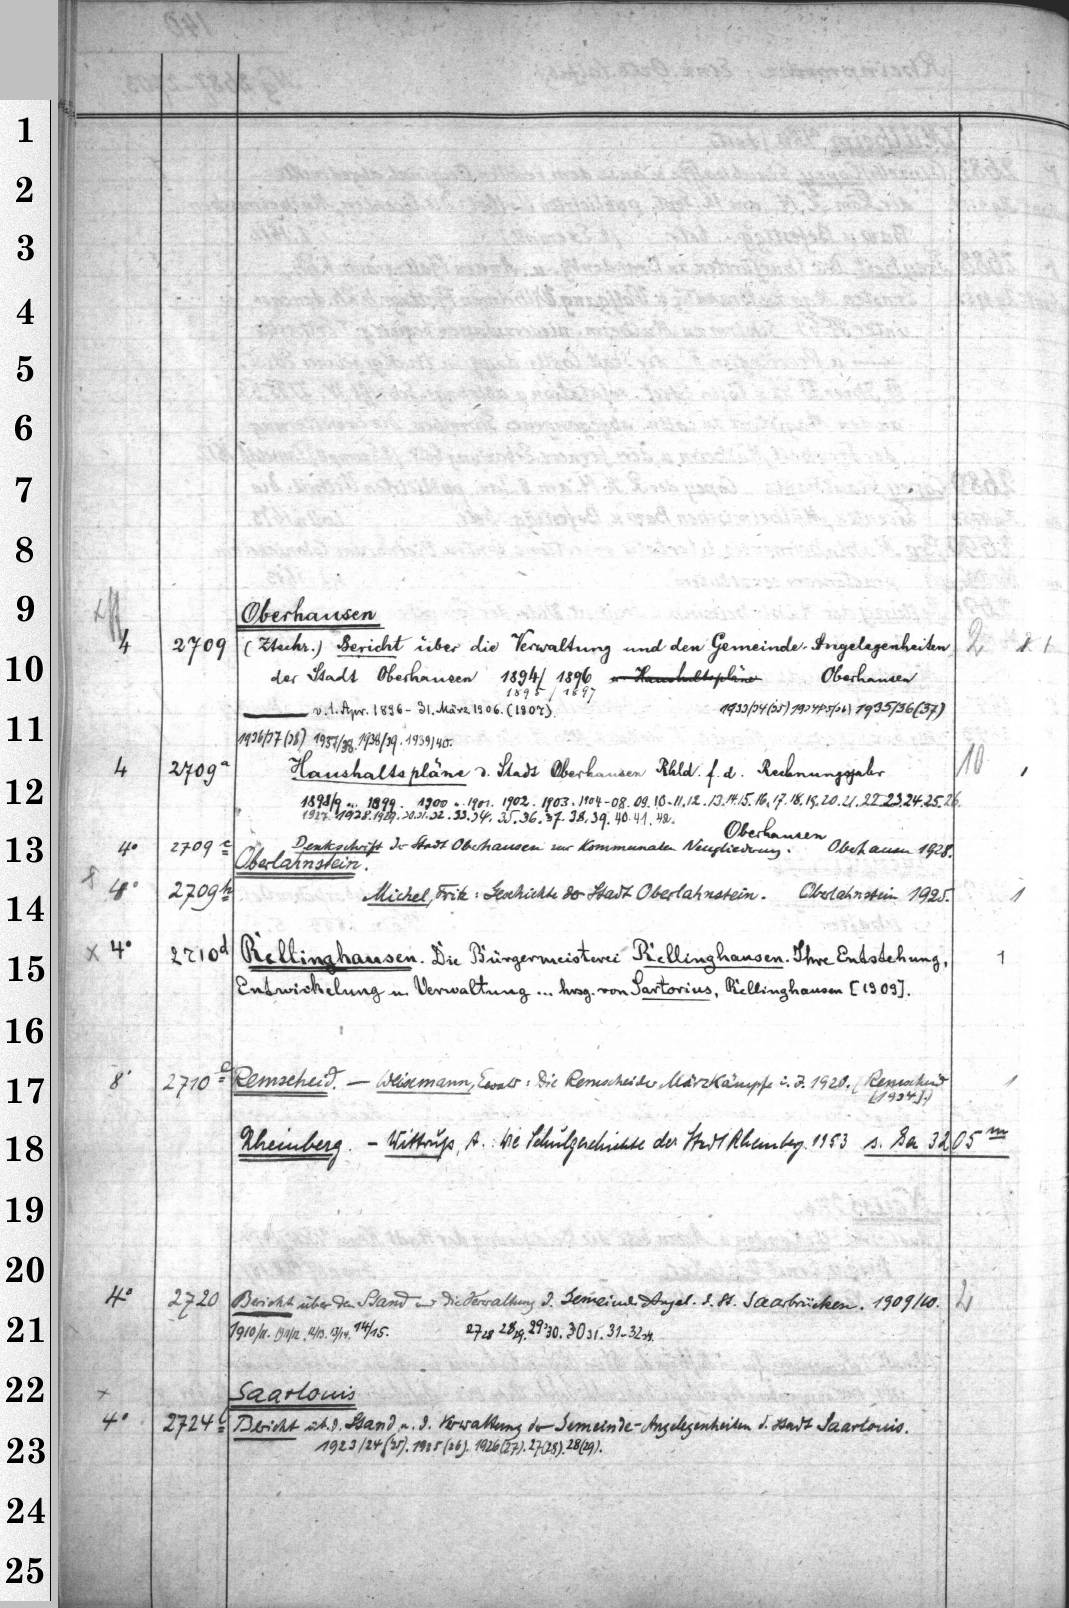 Oberhausen
4 2709 (Ztschr.) Bericht über die Verwaltung und den Gemeinde-Angelegenheiten 2
der Stadt Oberhausen 1894/1896 u. Haushaltspläne Oberhausen
1895/1897
v. 1. Apr. 1896 - 31. März 1906. (1907) 1933/34(35) 1934/35(36) 1935/36(37)
1936/37(38) 1937/38. 1938/39. 1939/40.
4 2709a Haushaltspläne d. Stadt Oberhausen Rhld. f. d. Rechnungsjahr 10
1898/9 1899. 1900. 1901. 1902. 1903. 1904-08. 09. 10-11. 12. 13. 14. 15. 16. 17. 18. 19. 20. 21. 22 23. 24. 25. 26.
1927. 1928. 1929. 30. 31. 32. 33. 34. 35. 36. 37. 38. 39. 40. 41. 42.
Oberhausen
4° 2709c Denkschrift der Stadt Oberhausen zur kommunalen Neugliederung. Oberhausen 1928.
Oberlahnstein.
8° 2709h Michel, Fritz: Geschichte der Stadt Oberlahnstein. Oberlahnstein 1925. 1
x 4° 2710d Rellinghausen. Die Bürgermeisterei Rellinghausen. Ihre Entstehung, 1
Entwickelung u. Verwaltung ... hrsg. von Sartorius, Rellinghausen [1909].
8° 2710e Remscheid. — Weisemann, Ewald: Die Remscheider Märzkämpfe i. J. 1920. (Remscheid 1
[1934].)
Rheinberg. - Wittrup, A.: Die Schulgeschichte der Stadt Rheinberg. 1953 s. Ba 3205m
4° 2720 Bericht über den Stand und die Verwaltung d. Gemeinde Angel. d. St. Saarbrücken. 1909/10.
1910/11. 1911/12. 12/13. 13/14. 14/15. 27 28 28 29. 29 30. 30 31. 31-32
x Saarlouis
4° 2724 Bericht üb. d. Stand u. d. Verwaltung der Gemeinde-Angelegenheiten d. Stadt Saarlouis.
1923/24 (25). 1925 (26). 1926 (27). 27 (28). 28 (29).